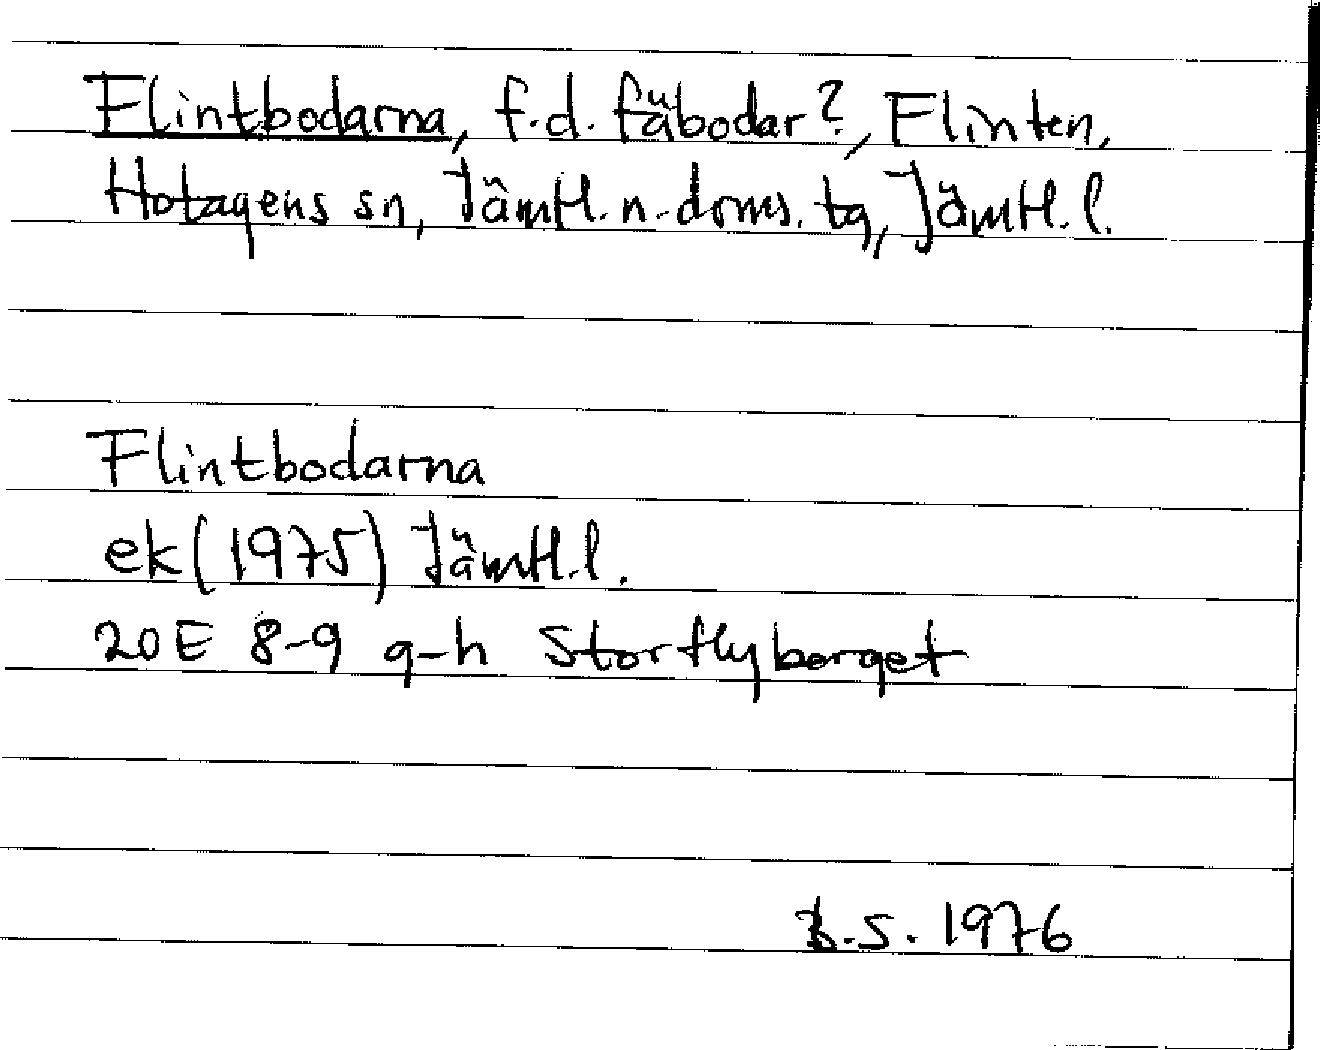 Flintbodarna, f.d. fäbodar?, Flinten,
Hotagens sn, Jämtl. n. doms. tg, Jämtl. l.
Flintbodarna
ek (1975) Jämtl. l.
20E 8-9 g-h Storflyberget
B.S. 1976